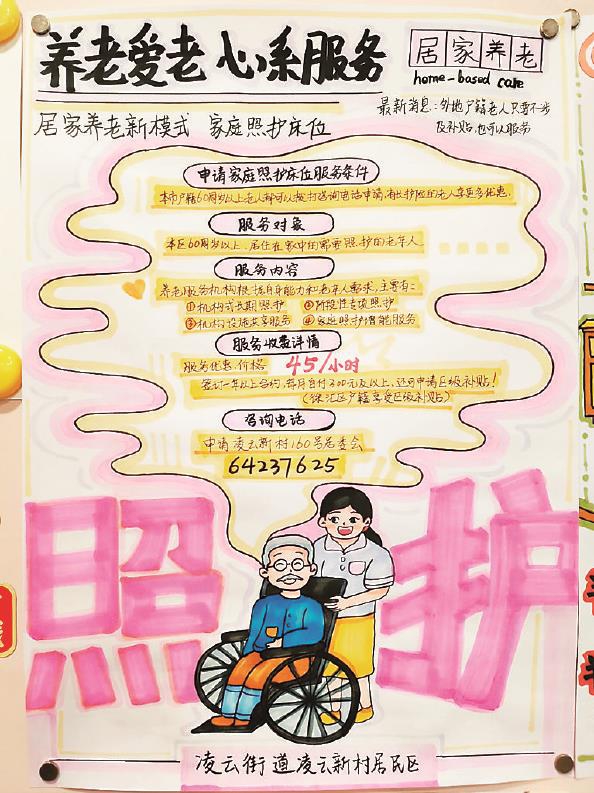 养老爱老 心系服务
居家养老
home-based care
最新消息：外地户籍老人只要不涉
及补贴，也可以服务
居家养老新模式 家庭照护床位
申请家庭照护床位服务条件
本市户籍60周岁以上老人都可以拨打咨询电话申请，有长护险的老人享更多优惠.
服务对象
本区60周岁以上、居住在家中的需要照护的老年人
服务内容
养老服务机构根据自身能力和老年人需求，主要有：
①机构式长期照护 ②阶段性专项照护
③机构设施共享服务 ④家庭照护增能服务
服务收费详情
服务优惠价格 45/小时
签订一年以上合约，每月自付300元及以上，还可申请区级补贴！
（徐汇区户籍享受区级补贴）
咨询电话
申请凌云新村160号居委会
64237625
照护
凌云街道凌云新村居民区